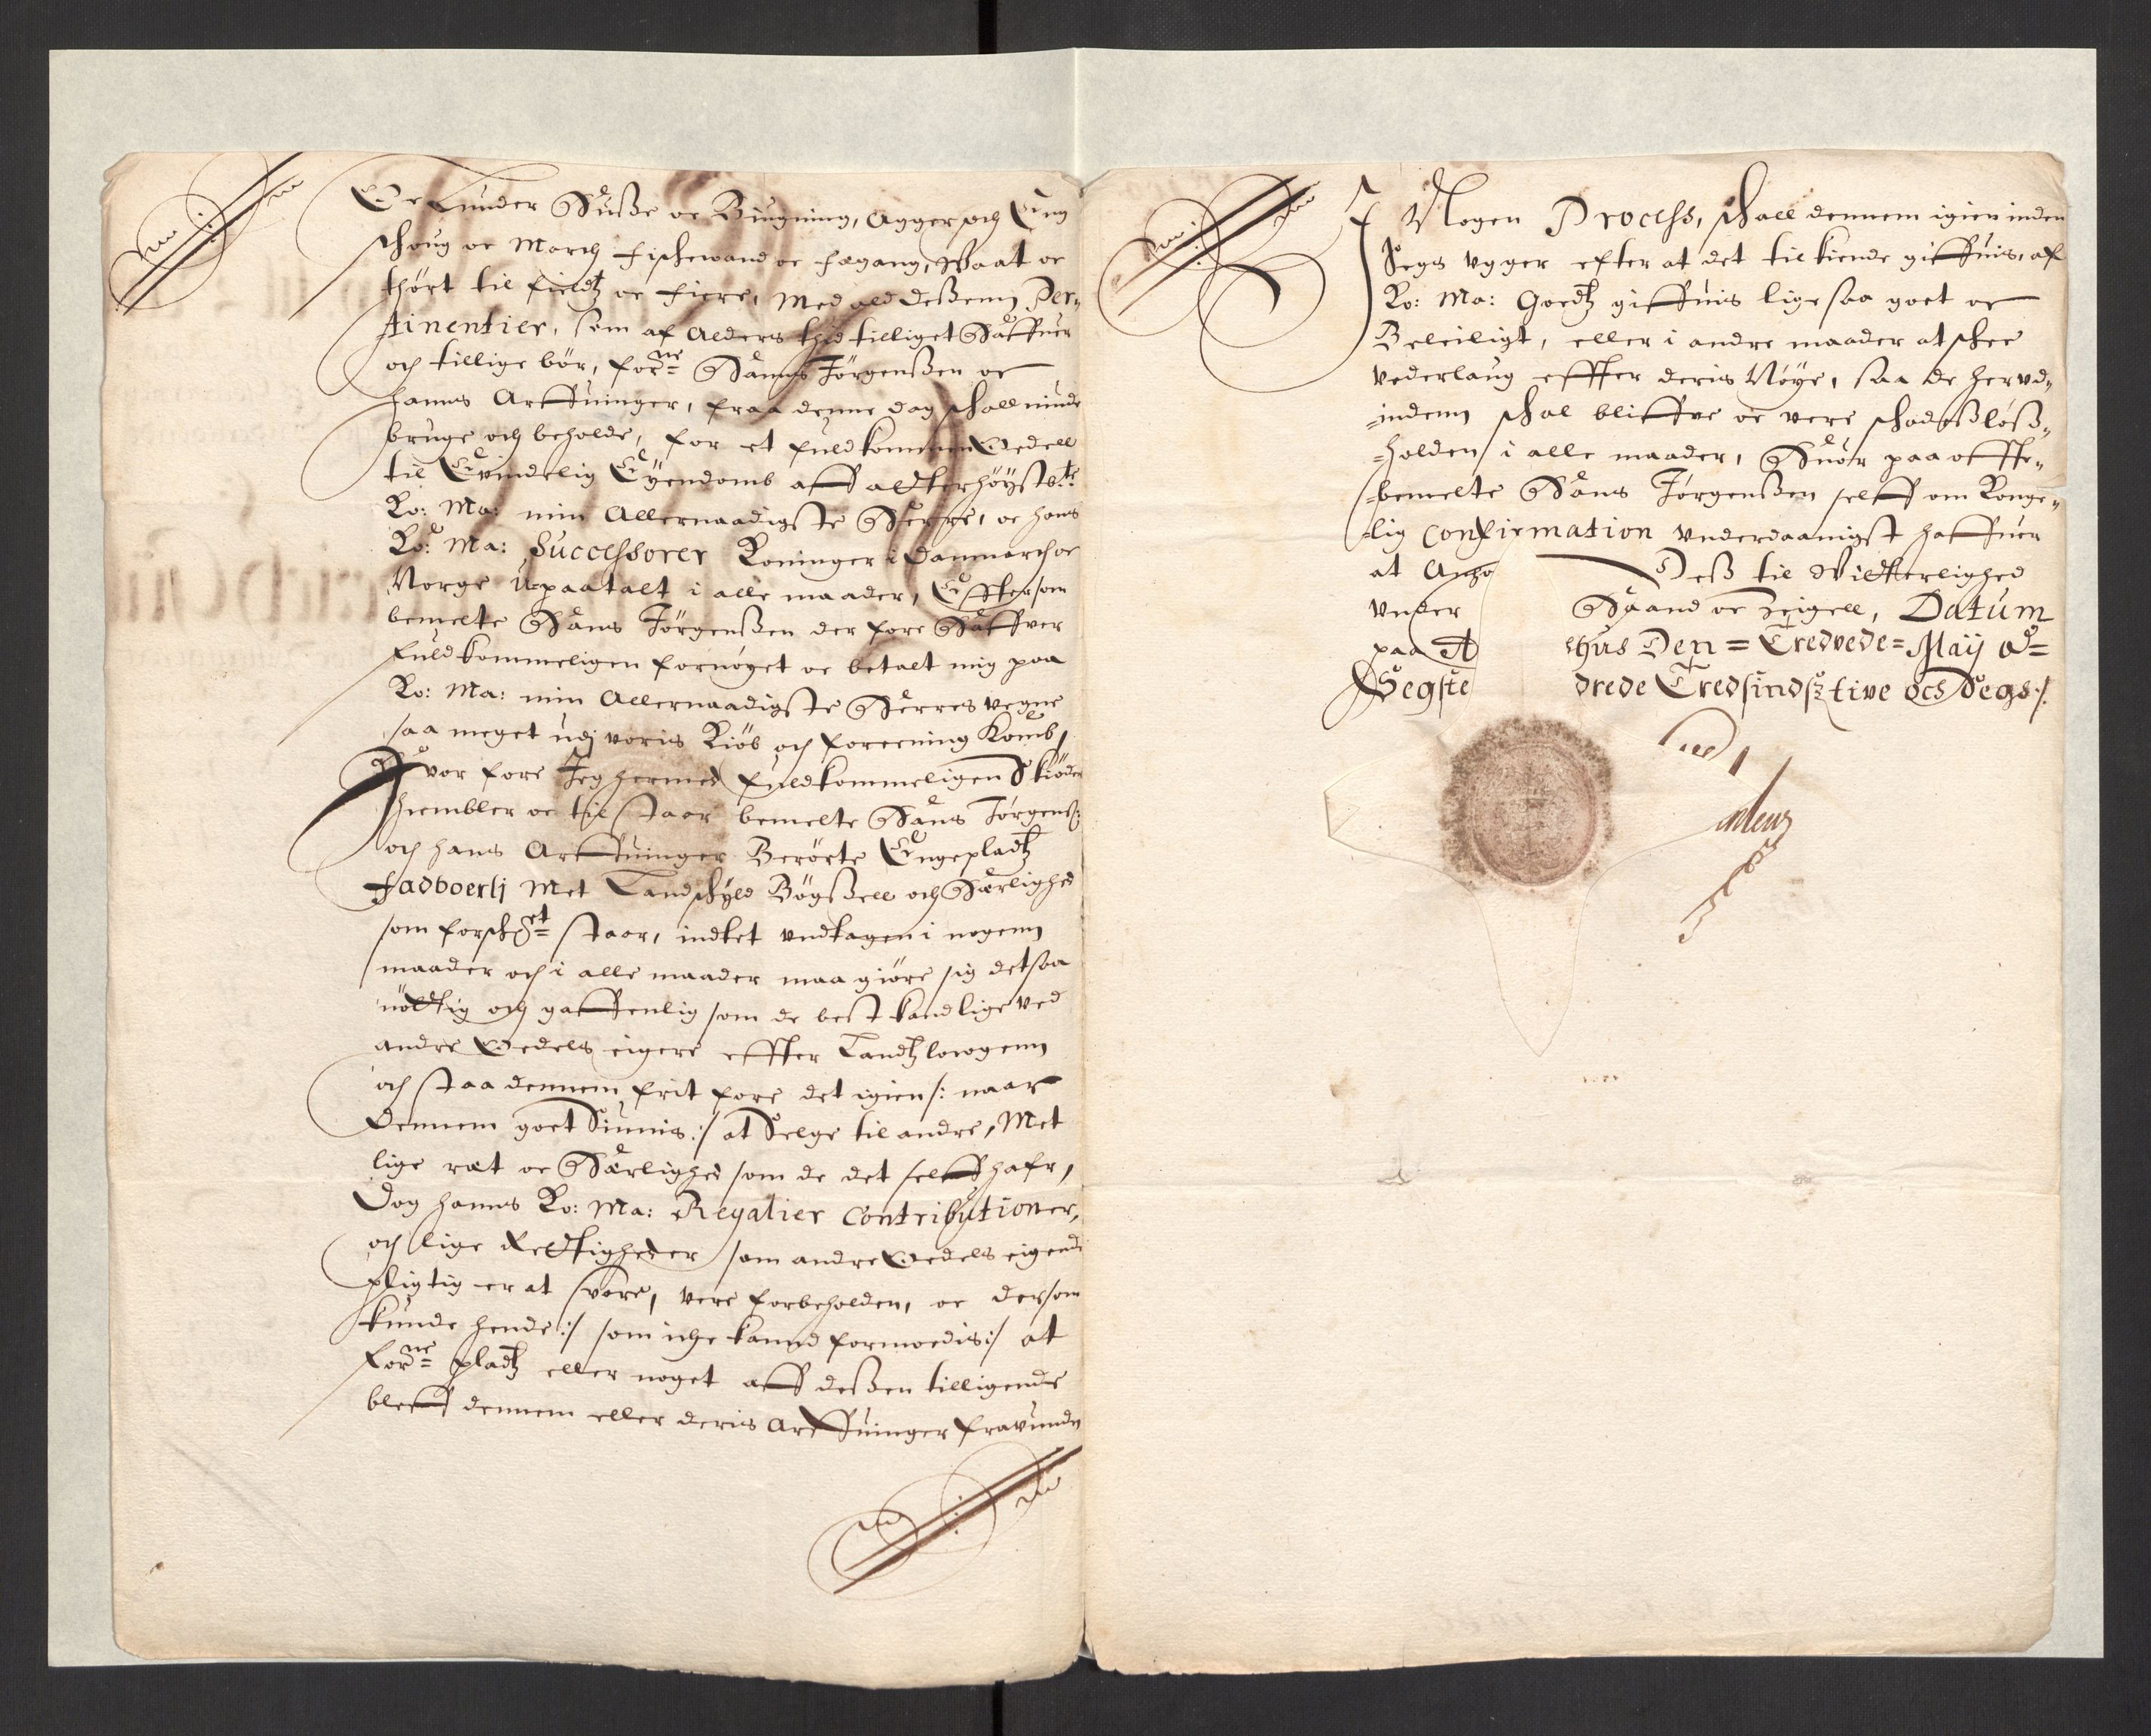 Oc Lunder Huße oc Biugning, Agger och Eng
schoug oc March fischewand oc fægang, Waat oc
thört til fieldtz oc fiere, Med ald deßenn Per,
tinentier, som af Alders tid tilliget Haffuer
och tillige bör, forne Hanns Jörgenßen oc
hanns Arffuinger, fraa denne dag schall niude
bruge och beholde, for et fuldkommen Oedell
til Evindelig Eyendomb aff alderhöystbte
Ko: Ma: min Allernaadigste Herre, oc hans
Ko: Ma: Successorer Koninger i Danmarch oc
Norge Upaatalt i alle maader, Efftersom
bemelte Hans Jörgenßen der fore Haffver
fuldkommeligen fornöyet oc betalt mig paa
Ko: Ma: min Allernaadigste Herres vegne
saa meget udj voris Kiöb och foreening Komb,
Hvor fore Jeg hermed fuldkommeligen Skiöder
hiembler oc til staar bemelte Hans Jörgenß:
och hans Arffuinger Berörte Engepladtz
fadboerlj Met Landschyld Bögßell och Herlighed
som forschet staar, indtet undtagen i nogenn
maader och i alle maader maa giöre sig det saa
nötttig och gaffenlig som de best kand lige ved
andre Oedels eigere effter Landtzlowgenn
och staa dennem frit fore det igien /: naar
dennem goet Siunis :/ at Selge til andre, Met
lige ræt oc Herlighed som de det selff hafr,
Dog hanns Ko: Ma: Regalier Contributioner,
och lige Rettigheder som andre Oedels eigende
pligtig er at svare, vere forbeholden, oc dersom
kunde hende :/ som iche kannd formodis :/ at
forne pladtz eller noget aff deßen tilligende
bleff dennem eller deris Arffuinger fravunden
I Nogen Process, schall dennem igien inden
Segs Ugger efter at det tilkiende giffuis, af
Ko: Ma: Goedtz giffuis lige saa goet oc
Beleiligt, eller i andre maader at schee
vederlaug effter deris Nöye, saa de her ud,,
=indenn schal bliffve oc vere schadeßlöß,,
=holden i alle maader, Huor paa offte,,
=bemelte Hans Jörgenßen selff om Konge,,
=lig Confirmation underdaanigst haffuer
at Anho Deß til Vitterlighed
under Haand oc Zeigell, Datum
paa A shus Den = Tredvede = Maij A=
Segste drede Tredsindstive ocs Segs :/